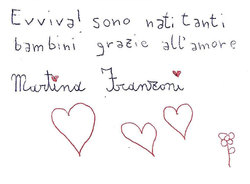 Evviva! sono nati tanti
bambini grazie all'amore
Martina Franzoni